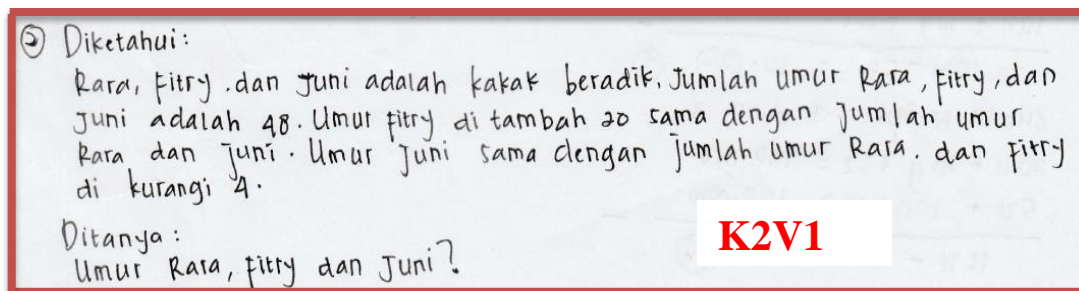 ② Diketahui:
Rara, Fitry, dan Juni adalah kakak beradik. Jumlah umur Rara, Fitry, dan
Juni adalah 48. Umur Fitry di tambah 20 sama dengan Jumlah umur
Rara dan Juni. Umur Juni sama dengan jumlah umur Rara, dan Fitry
di kurangi 4.
Ditanya:
Umur Rara, Fitry dan Juni?
K2V1